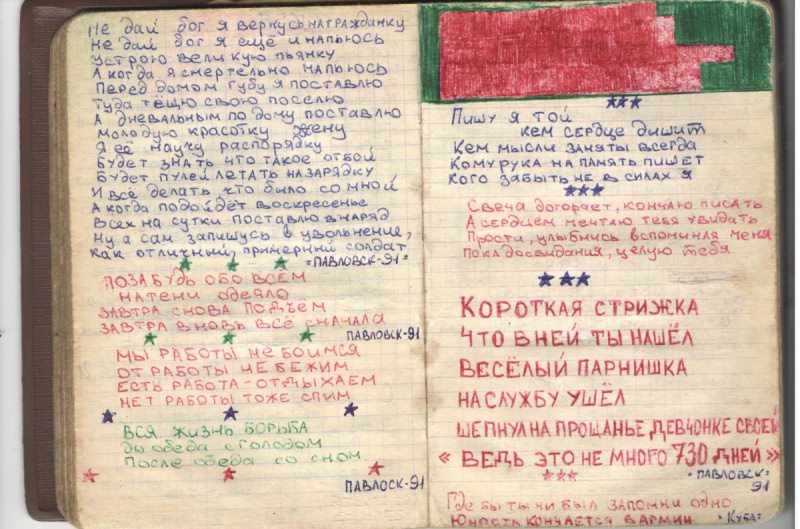 Не дай бог я вернусь на гражданку
Не дай бог я ещё и напьюсь
Устрою великую пьянку
А когда я смертельно напьюсь
Перед домом губу я поставлю
Туда тёщю свою поселю
А дневальным по дому поставлю
Молодую красотку жену
Я её научу распорядку
Будет знать что такое отбой
Будет пулей летать на зарядку
И всё делать что было со мной
А когда подойдёт воскресенье
Всех на сутки поставлю в наряд
Ну а сам запишусь в увольнение,
Как отличний, примерний солдат
"ПАВЛОВСК-91"
ПОЗАБУДЬ ОБО ВСЕМ
НАТЕНИ ОДЕЯЛО
ЗАВТРА СНОВА ПОДЪЕМ
ЗАВТРА ВНОВЬ ВСЁ СНАЧАЛА
ПАВЛОВСК-91
МЫ РАБОТЫ НЕ БОИМСЯ
ОТ РАБОТЫ НЕ БЕЖИМ
ЕСТЬ РАБОТА-ОТДЫХАЕМ
НЕТ РАБОТЫ ТОЖЕ СПИМ
ВСЯ ЖИЗНЬ БОРЬБА
До обеда с голодом
После обеда со сном.
ПАВЛОСК-91
Пишу я той
кем сердце дишит
Кем мысли заняты всегда
Кому рука на память пишет
Кого забыть не в силах я
Свеча догорает, кончаю писать
А сердцем мечтаю тебя увидать
Прости, улыбнись вспоминая меня
Пока досвидания, целую тебя
КОРОТКАЯ СТРИЖКА
ЧТО В НЕЙ ТЫ НАШЁЛ
ВЕСЁЛЫЙ ПАРНИШКА
НА СЛУЖБУ УШЁЛ
ШЕПНУЛ НА ПРОЩАНЬЕ ДЕВЧОНКЕ СВОЕЙ
« ВЕДЬ ЭТО НЕ МНОГО 730 ДНЕЙ »
"ПАВЛОВСК-
91
Где бы ты ни был запомни одно
Юность кончается в Армии
"Куба"